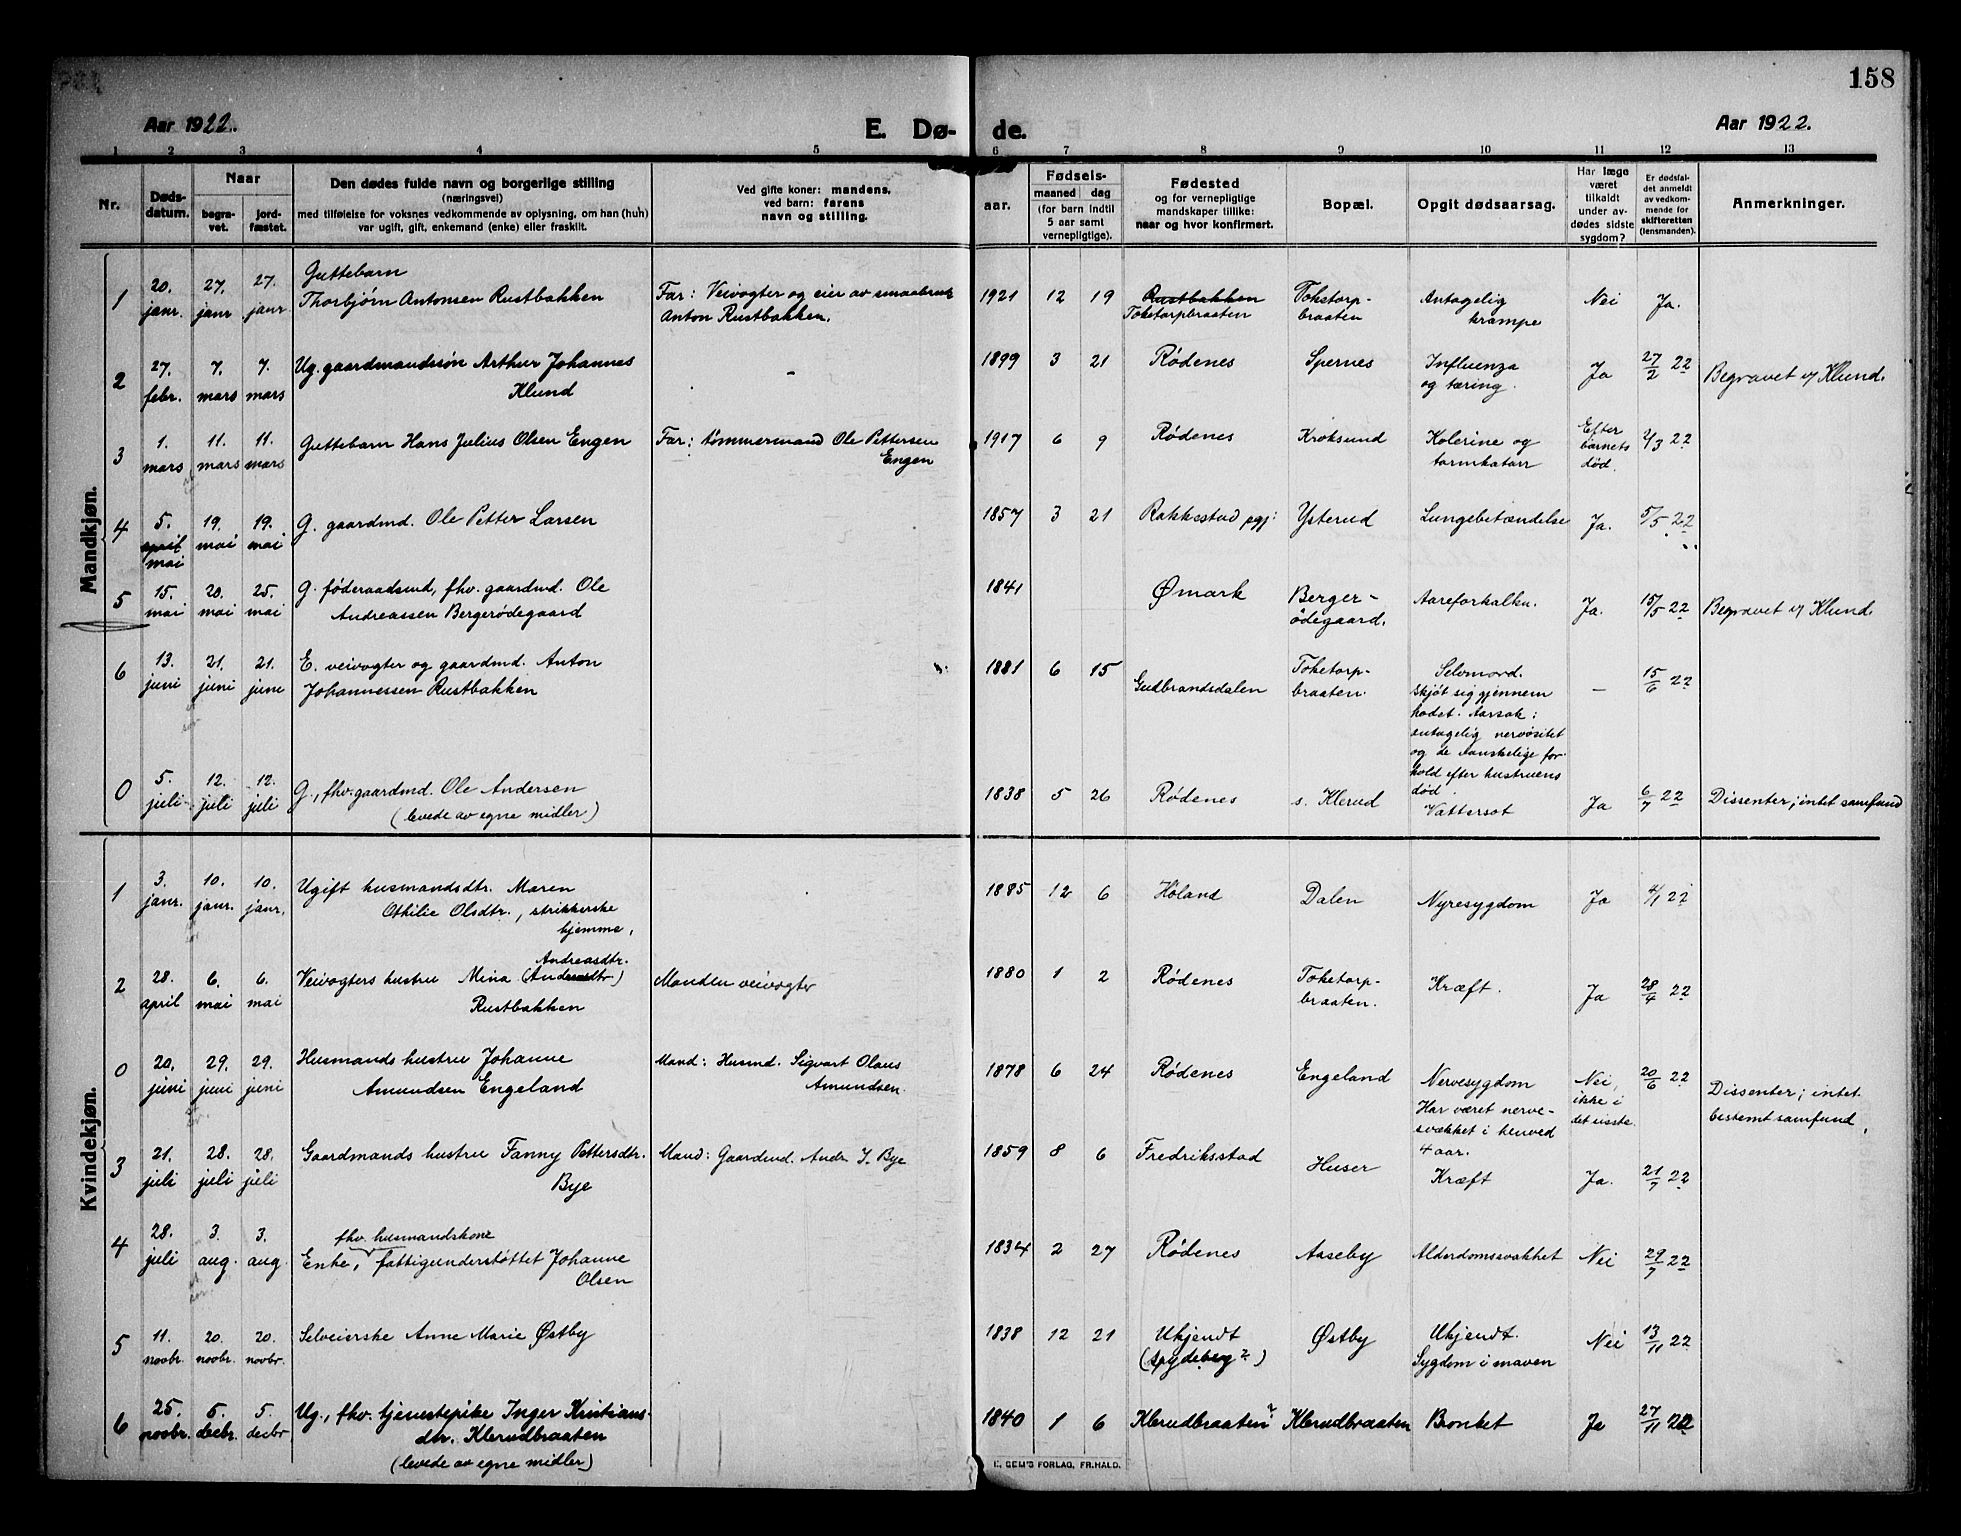 158
Aar 1922.
E. Dø- de.
Aar 1922.
1 2 3 4 5 6 7 8 9 10 11 12 13
Nr.
Døds-
datum.
Naar
begra-
vet.
jord-
fæstet.
Den dødes fulde navn og borgerlige stilling
(næringsvei)
med tilføielse for voksnes vedkommende av oplysning, om han (hun)
var ugift, gift, enkemand (enke) eller fraskilt.
Ved gifte koner: mandens.
ved barn: farens
navn og stilling.
Fødsels-
aar.
maaned dag
(for barn indtil
5 aar samt
vernepligtige).
Fødested
og for vernepligtige
mandskaper tillike:
naar og hvor konfirmert.
Bopæl.
Opgit dødsaarsag.
Har læge
været
tilkaldt
under av-
dødes sidste
sygdom?
Er dødsfal-
det anmeldt
av vedkom-
mende for
skifteretten
(lensmanden).
Anmerkninger.
Mandkjøn.
1
20. janr.
27. janr
27. janr
Guttebarn
Thorbjørn Antonsen Rustbakken
Far: Veivogter og eier av smaabruk
Anton Rustbakken.
1921 12 19
Rustbakken
Toketorpbraaten
Toketorp-
braaten
Antagelig
krampe
Nei
Ja.
2
27. febr.
7. mars
7. mars
Ug. gaardmandssøn Arthur Johannes
Klund
-
1899 3 21
Rødenes
Spernes
Influenza
og tæring.
Ja
27/2 22
Begravet v/ Klund.
3
1. mars
11. mars
11. mars
Guttebarn Hans Julius Olsen Engen
Far: tømmermand Ole Pettersen
Engen
1917 6 9
Rødenes
Kroksund
Kolerine og
tarmkatarr
Efter
barnets
død.
2/3 22
4
5. april
mai
19. mai
19. mai
G. gaardmd. Ole Petter Larsen
1857 3 21
Rakkestad pgj:
Ysterud
Lungebetændelse
Ja.
5/5 22
5
15. mai
20. mai
25. mai
G. føderaadsmd, fhv. gaardmd. Ole
Andreassen Bergerødegaard
1841
Ømark
Berger-
ødegaard.
Aareforkalkn.
Ja.
15/5 22
Begravet v/ Klund.
6
13. juni
21. juni
21. june
E. veivogter og gaardmd. Anton
Johannessen Rustbakken
1881 6 15
Gudbrandsdalen
Toketorp-
braaten.
Selvmord.
Skjøt sig gjennem
hodet. Aarsak:
antagelig nervøsitet
og de vanskelige for-
hold efter hustruens
død.
-
15/6 22
0
5. juli
12. juli
12. juli
G., fhv. gaardmd. Ole Andersen
(levede av egne midler)
1838 5 26
Rødenes
s. Klerud
Vattersot
Ja
6/7 22
Dissenter; intet samfund
Kvindekjøn.
1
3. janr.
10. janr.
10. janr.
Ugift husmandsdtr. Maren
Othilie Olsdtr., strikkerske
hjemme.
1885 12 6
Høland
Dalen
Nyresygdom
Ja
4/1 22
2
28. april
6. mai
6. mai
Andreasdtr.
Veivogters hustru Mina (Andreasdtr)
Rustbakken
Manden veivogter
1880 1 2
Rødenes
Toketorp-
braaten.
Kræft.
Ja
28/4 22
0
20. juni
29. juni
29. juni
Husmands hustru Johanne
Amundsen Engeland
Mand: Husmd. Sigvart Olaus
Amundsen.
1878 6 24
Rødenes
Engeland
Nervesygdom
Har været nerve-
svækket i henved
4 aar.
Nei,
ikke i
det sisste.
20/6 22
Dissenter; intet
bestemt samfund.
3
21. juli
28. juli
28. juli
Gaardmands hustru Fanny Pettersdtr.
Bye
Mand: Gaardmd. Andr J. Bye
1859 8 6
Fredriksstad
Huser
Kræft
Ja.
21/7 22
4
28. juli
3. aug.
3. aug.
fhv. husmandskone
Enke, fattigunderstøttet Johanne
Olsen
1834 2 27
Rødenes
Aaseby
Alderdomssvakhet
Nei
29/7 22
5
11. novbr.
20. novbr.
20. novbr.
Selveierske Anne Marie Østby
1838 12 21
Ukjendt
(Spydeberg?)
Østby
Ukjendt.
Sygdom i maven
Nei
13/11 22
6
25. novbr.
5. decbr.
5. decbr
Ug., fhv. tjenestepike Inger Kristians-
dtr. Klerudbraaten
(levede av egne midler)
1840 1 6
Klerudbraaten?
Klerudbraaten
Bronket
Ja
27/11 22
E. SEM'S FORLAG, FR.HALD.